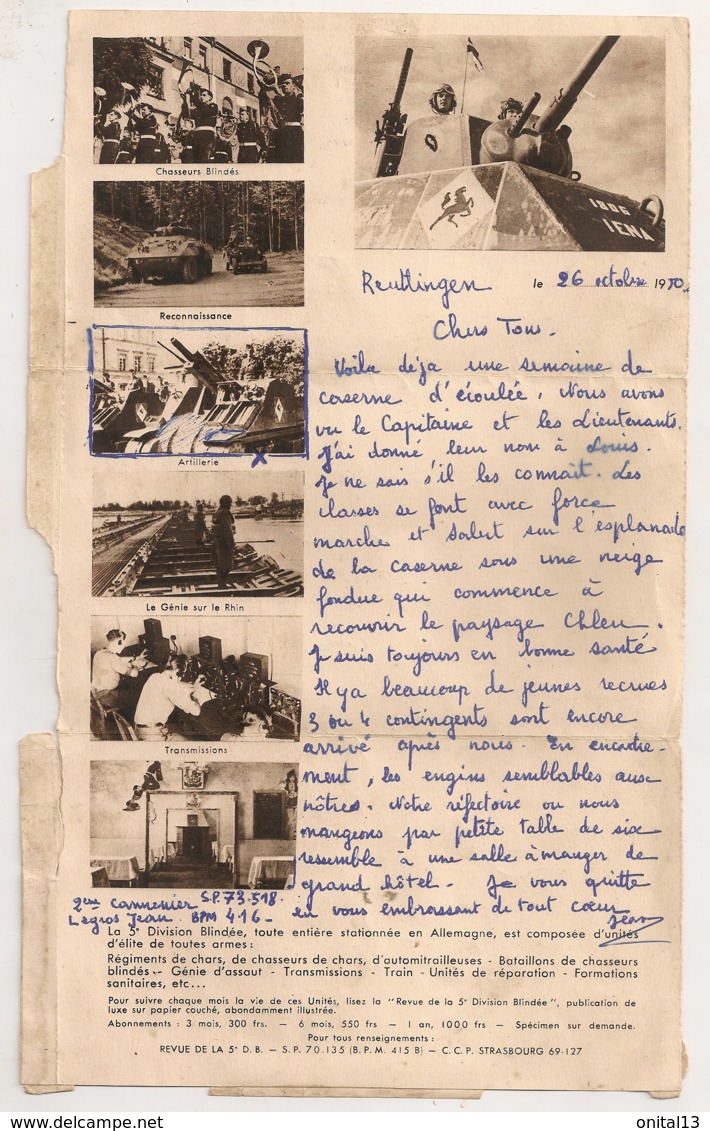 Chasseurs Blindés
Reconnaissance
Artillerie X
Le Génie sur le Rhin
Transmissions
1806
IENA
Reuttingen le 26 octobre 1950
Chers Tous.
Voila déja une semaine de
caserne d'écoulée. Nous avons
vu le Capitaine et les Lieutenants.
J'ai donné leur nom à Louis.
Je ne sais s'il les connait. Les
classes se font avec force
marche et salut sur l'esplanade
de la caserne sous une neige
fondue qui commence à
recouvrir le paysage Chleu.
Je suis toujours en bonne santé
Il y a beaucoup de jeunes recrues
3 ou 4 contingents sont encore
arrivé après nous. En encadre-
ment, les engins semblables aux
nôtres. Notre réfectoire ou nous
mangeons par petite table de six
ressemble à une salle à manger de
grand hôtel. Je vous quitte
en vous embrassant de tout cœur
Jean
2eme cannonier S.P. 73-518.
Legros Jean. BPM 416-
La 5e Division Blindée, toute entière stationnée en Allemagne, est composée d'unités
d'élite de toutes armes :
Régiments de chars, de chasseurs de chars, d'automitrailleuses - Bataillons de chasseurs
blindés - Génie d'assaut - Transmissions - Train - Unités de réparation - Formations
sanitaires, etc...
Pour suivre chaque mois la vie de ces Unités, lisez la "Revue de la 5e Division Blindée", publication de
luxe sur papier couché, abondamment illustrée.
Abonnements : 3 mois, 300 frs. — 6 mois, 550 frs — 1 an, 1000 frs — Spécimen sur demande.
Pour tous renseignements :
REVUE DE LA 5e D.B. - S.P. 70.135 (B.P.M. 415 B) - C.C.P. STRASBOURG 69-127
onital13